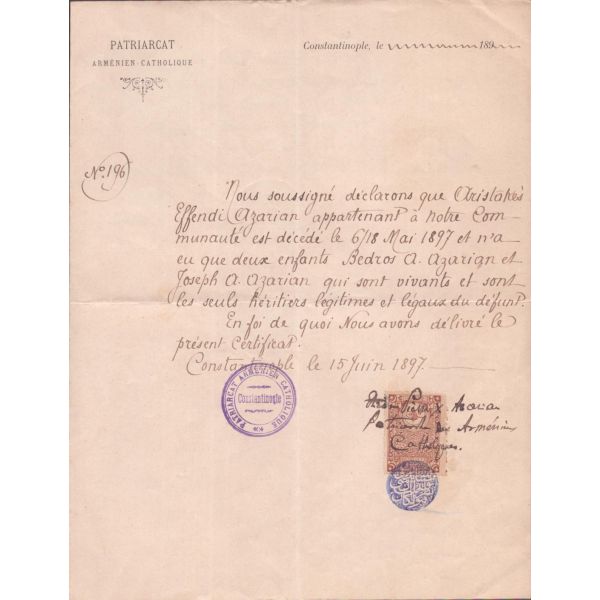 PATRIARCAT
ARMÉNIEN-CATHOLIQUE
Constantinople, le 189
No. 196
Nous soussigné déclarons que Aristakès
Effendi Azarian appartenant à notre Com-
munauté est décédé le 6/18 Mai 1897 et n'a
eu que deux enfants Bedros A. Azarian et
Joseph A. Azarian qui sont vivants et sont
les seuls héritiers légitimes et légaux du défunt.
En foi de quoi Nous avons délivré le
présent Certificat.
Constantinople le 15 Juin 1897.
PATRIARCAT ARMÉNIEN CATHOLIQUE
Constantinople
Pierre X Azarian
Patriarche des Arméniens
Catholiques.